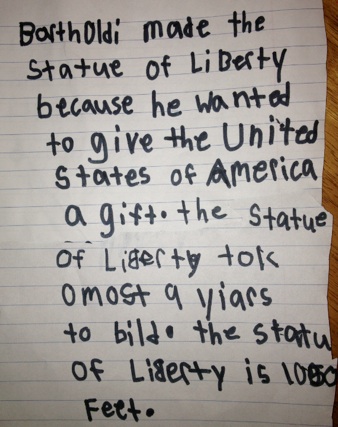 BarthOldi made the
Statue of LiBerty
because he wanted
to give the United
States of America
a gift. the Statue
of LiBerty tok
omost 9 yiars
to bild. the statu
of LiBerty is
Feet.